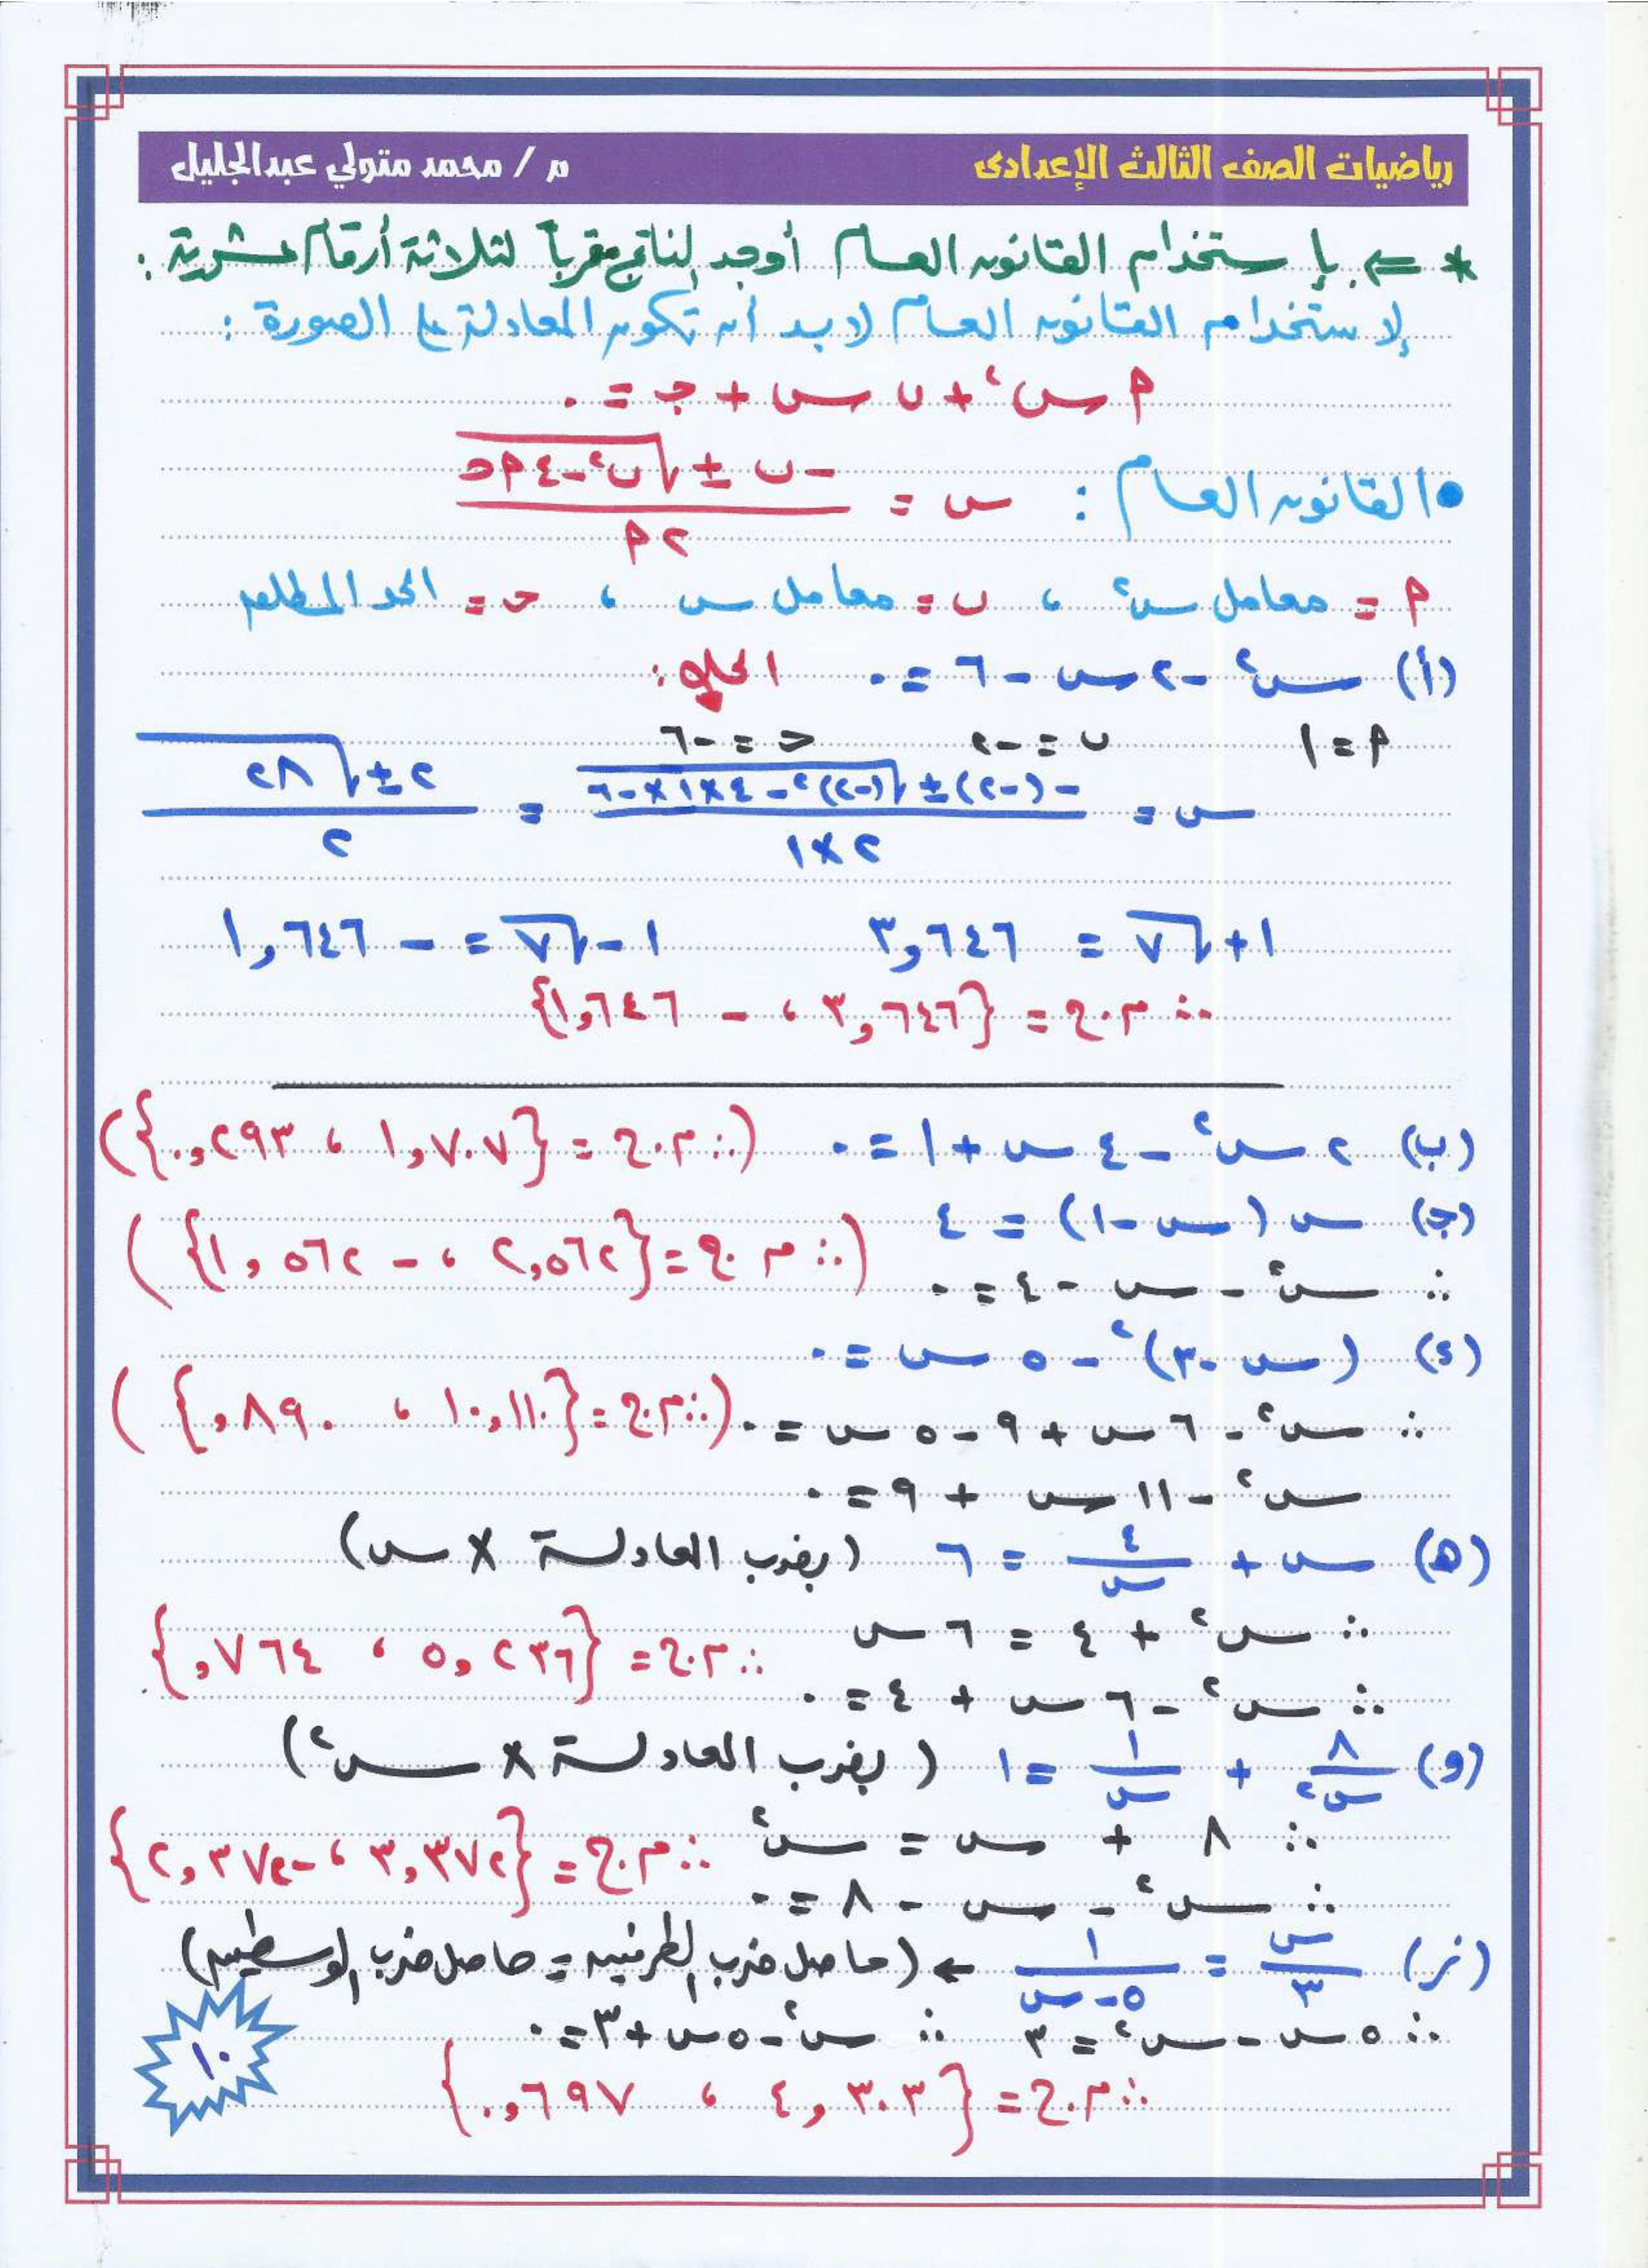 رياضيات الصف الثالث الإعدادى م / محمد متولي عبدالجليل
* ⇐ بإستخدام القانون العام أوجد الناتج مقرباً لثلاثة أرقام عشرية :
لإستخدام القانون العام لابد أن تكون المعادلة على الصورة :
٢س + ب س + جـ = ٠ أ
• القانون العام : س = (-ب ± √(ب² - ٤أجـ)) / ٢أ
أ = معامل س² ، ب = معامل س ، حـ = الحد المطلق
(أ) س² - ٢س - ٦ = ٠ الحل :
أ = ١ ب = -٢ حـ = -٦
س = (-(-٢) ± √((-٢)² - ٤×١×-٦)) / (٢×١) = (٢ ± √٢٨) / ٢
١ + √٧ = ٣,٦٤٦ ١ - √٧ = - ١,٦٤٦
∴ م.ح = {٣,٦٤٦ ، - ١,٦٤٦}
(ب) ٢س² - ٤س + ١ = ٠ (∴ م.ح = {١,٧٠٧ ، ٠,٢٩٣})
(جـ) س (س - ١) = ٤
∴ س² - س - ٤ = ٠ (∴ م.ح = {٢,٥٦٢ ، - ١,٥٦٢})
(د) (س - ٣)² - ٥س = ٠
∴ س² - ٦س + ٩ - ٥س = ٠ (∴ م.ح = {١٠,١١٠ ، ٠,٨٩٠})
س² - ١١س + ٩ = ٠
(هـ) س + ٤/س = ٦ (بضرب المعادلة × س)
∴ س² + ٤ = ٦س
∴ س² - ٦س + ٤ = ٠ ∴ م.ح = {٥,٢٣٦ ، ٠,٧٦٤}
(و) ٨/س² + ١/س = ١ (بضرب المعادلة × س²)
∴ ٨ + س = س² ∴ م.ح = {٣,٣٧٢ ، -٢,٣٧٢}
∴ س² - س - ٨ = ٠
(ز) س/٣ = ١/(٥-س) ← (حاصل ضرب الطرفين = حاصل ضرب الوسطين)
∴ ٥س - س² = ٣ ∴ س² - ٥س + ٣ = ٠
∴ م.ح = {٤,٣٠٣ ، ٠,٦٩٧}
١٠